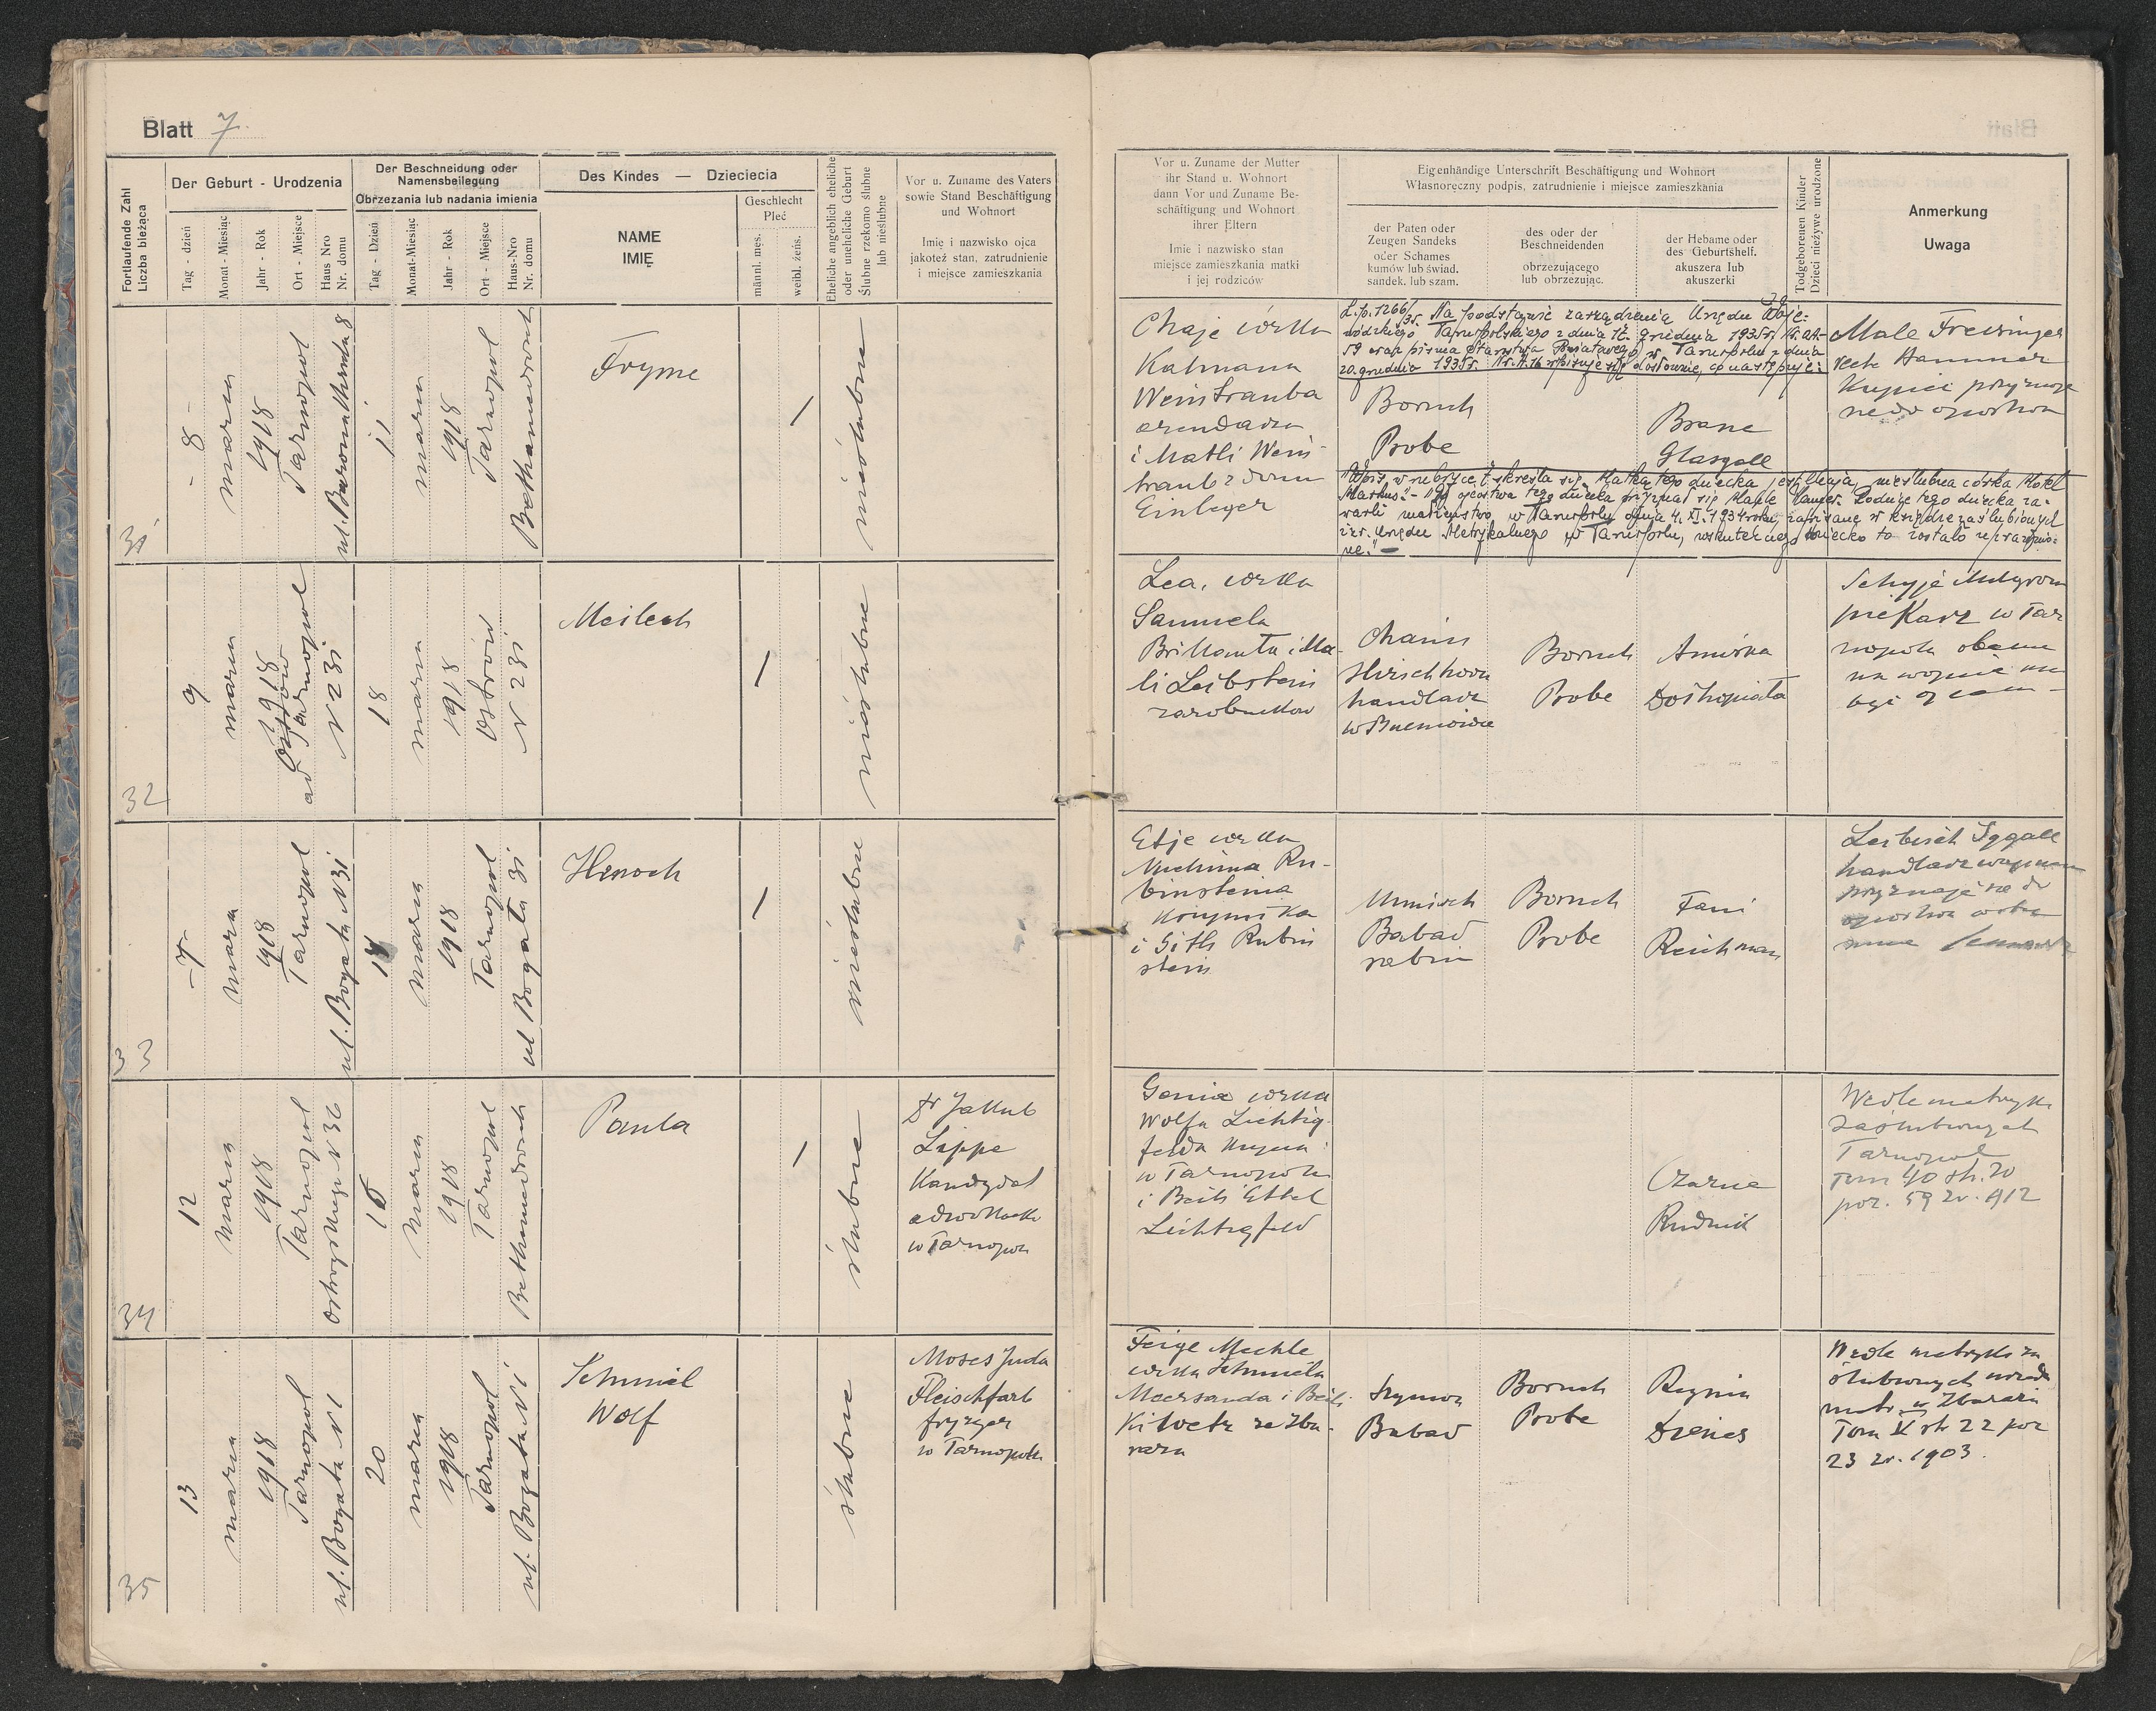 Blatt 7.
Fortlaufende Zahl
Liczba bieżąca
Der Geburt - Urodzenia
Tag - dzień
Monat - Miesiąc
Jahr - Rok
Ort - Miejsce
Haus Nro
Nr. domu
Der Beschneidung oder
Namensbeilegung
Obrzezania lub nadania imienia
Tag - Dzień
Monat-Miesiąc
Jahr - Rok
Ort - Miejsce
Haus-Nro
Nr. domu
Des Kindes — Dzieciecia
NAME
IMIĘ
Geschlecht
Płeć
männl. męs.
weibl. żeńs.
Eheliche angeblich eheliche
oder uneheliche Geburt
Ślubne rzekomo ślubne
lub nieślubne
Vor u. Zuname des Vaters
sowie Stand Beschäftigung
und Wohnort
Imię i nazwisko ojca
jakoteż stan, zatrudnienie
i miejsce zamieszkania
Vor u. Zuname der Mutter
ihr Stand u. Wohnort
dann Vor und Zuname Be-
schäftigung und Wohnort
ihrer Eltern
Imie i nazwisko stan
miejsce zamieszkania matki
i jej rodziców
Eigenhändige Unterschrift Beschäftigung und Wohnort
Własnoręczny podpis, zatrudnienie i miejsce zamieszkania
der Paten oder
Zeugen Sandeks
oder Schames
kumów lub świad.
sandek. lub szam.
des oder der
Beschneidenden
obrzezującego
lub obrzezując.
der Hebame oder
des Geburtshelf.
akuszera lub
akuszerki
Todgeborenen Kinder
Dzieci nieżywe urodzone
Anmerkung
Uwaga
31
- 8 -
marca
1918
Tarnopol
ul. Barona Hirscha 8
11
marca
1918
Tarnopol
Bethamidrasch
Fryme
/
nieślubne
Chaje córka
Kalmana
Weintrauba
arendarza
i Matli Wein-
traub z domu
Einleger
L.p. 1266/35. Na podstawie zarządzenia Urzędu Woje-
wódzkiego Tarnopolskiego z dnia 12. grudnia 1935r. Nr.
59 oraz pisma Starostwa Powiatowego w Tarnopolu z dnia
20. grudnia 1935r. wpisuje się dosłownie, co następuje:
Boruch
Probe
Brane
Glasgall
"Wpis w rubryce skreśla się. Matką tego dziecka jest Chaja, nieślubna córka Motel
Markus." - "Do ojcostwa tego dziecka przyznał się Małe Hamer. Rodzice tego dziecka za-
warli małżeństwo w Tarnopolu dnia 4. XI. 1934 roku, zapisane w księdze zaślubionych
izr. Urzędu Metrykalnego w Tarnopolu, wskutek czego dziecko to zostało uprawnio-
ne." -
Male Freisinger
recte Hammer
Kupiec przyznaje
się do ojcostwa
32
9
marca
1918
Ostrów
ad Tarnopol
N 231
18
marca
1918
Ostrów
N 231
Meilech
/
nieślubne
Lea, córka
Samuela
Brillanta i Ma-
li Leibstein
zarobników
Chaim
Hirschhorn
handlarz
Boruch
Probe
piekarz w Tar
nopolu obecnie
na wojnie
33
- 7 -
marca
1918
Tarnopol
ul. Bogata N 31
14
marca
1918
Tarnopol
ul Bogata 31
Henoch
/
nieślubne
Etje córka
Nuchima Ru-
binsteina
i Gitli Rubin
stein
Babad
rabin
Boruch
Probe
Fani
Reichman
Leibisch Sygall
handlarz
przyznaje się do
ojcostwa
34
12
marca
1918
Tarnopol
N 36
16
marca
1918
Tarnopol
Bethamidrasch
Paula
/
ślubne
Dr Jakub
Lippe
Kandydat
adwokacki
w Tarnopolu
Genia córka
Wolfa Lichtig-
felda kupca
w Tarnopolu
i Beili Ettel
Lichtigfeld
Czarne
Rudnik
Wedle metryki
zaślubionych
Tarnopol
Tom 40 str. 20
poz. 59 zr. 1912
35
13
marca
1918
Tarnopol
ul. Bogata N 1
20
marca
1918
Tarnopol
ul. Bogata N 1
Schmiel
Wolf
ślubne
Moses Juda
Fleischfarb
fryzjer
w Tarnopolu
Feige Mechle
córka Schmiela
Meersanda i Beili
ze Zba-
raża
Szymon
Babad
Boruch
Probe
Regina
Dienes
Wedle metryki za
ślubionych urzędu
metr. w Zbarażu
Tom V str 22 poz
23 zr. 1903.